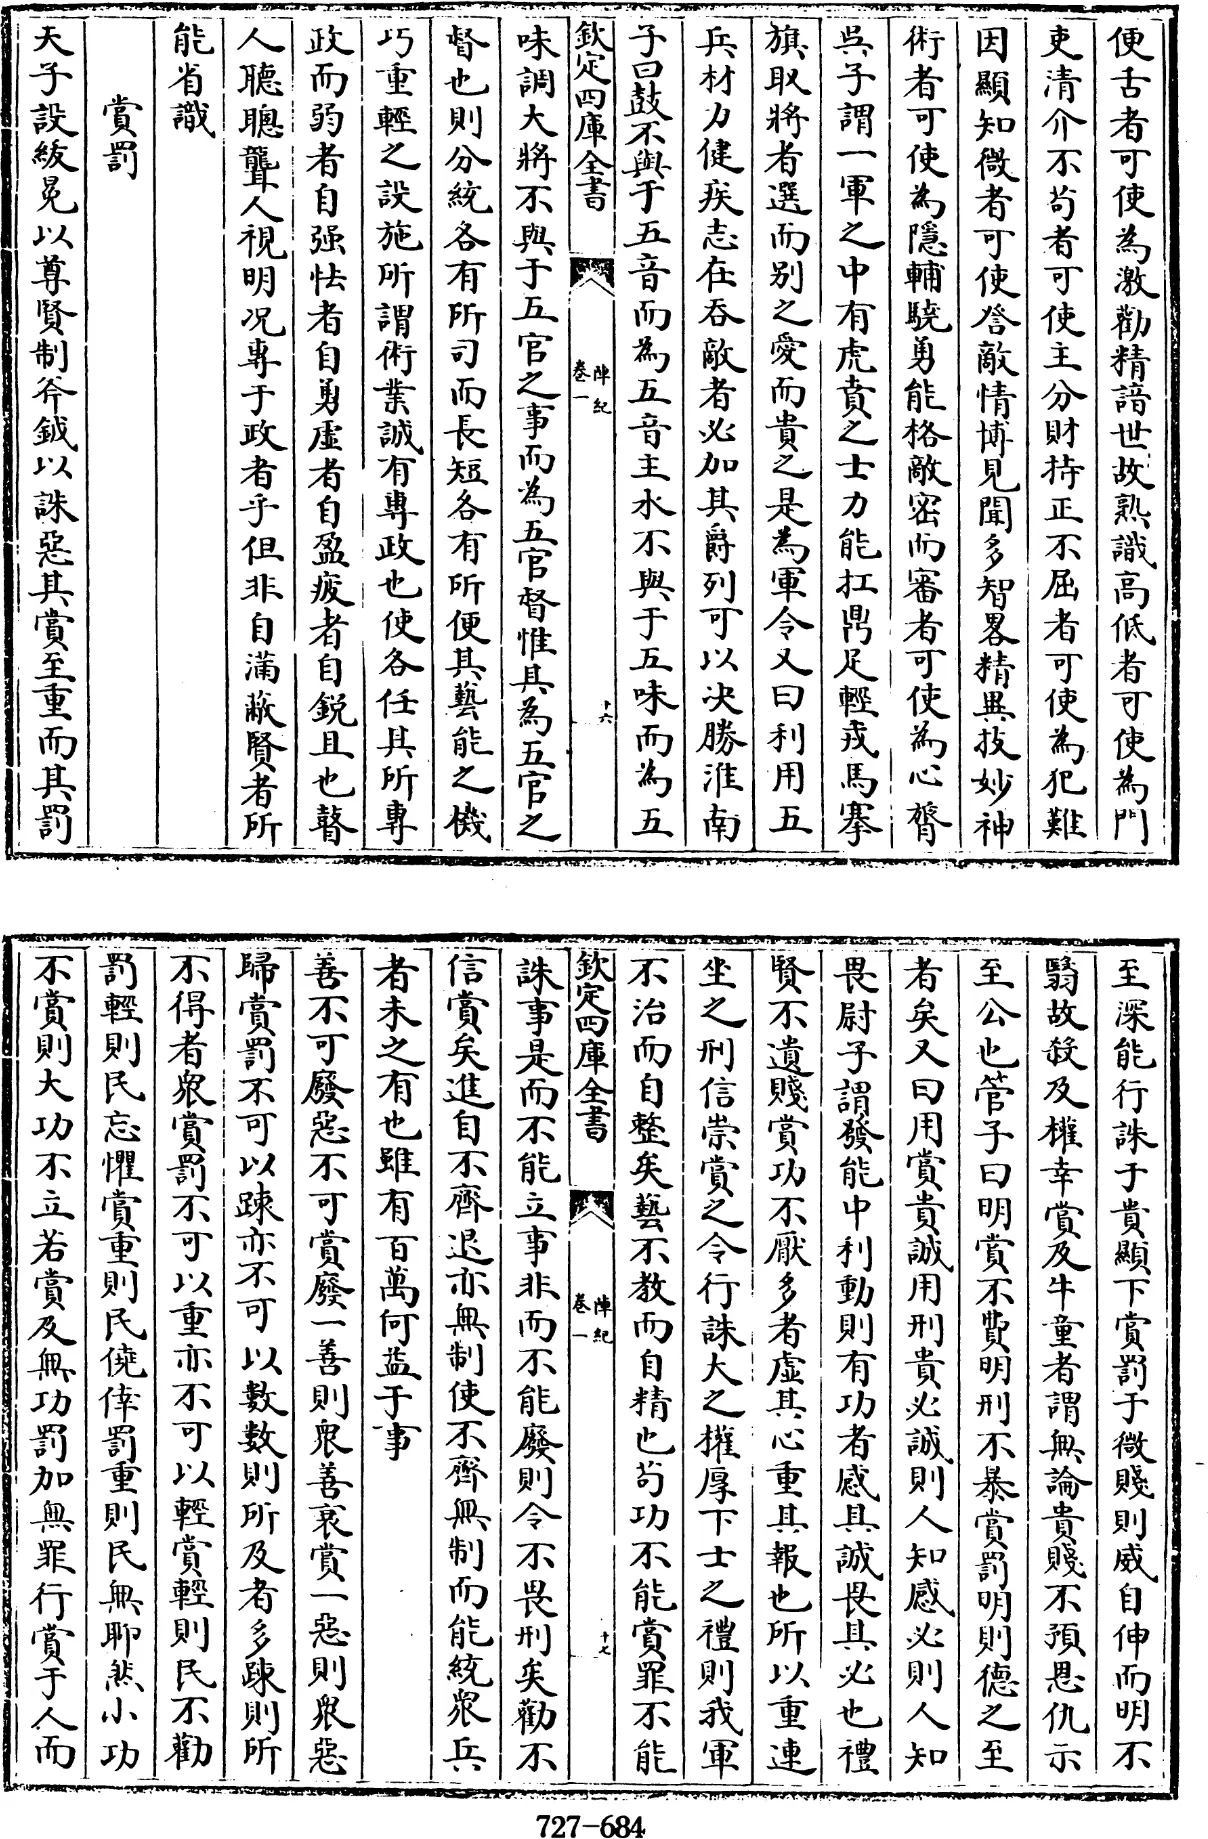 便舌者可使為激勸精諳世故熟識高低者可使為門
吏清介不苟者可使主分財持正不屈者可使為犯難
因顯知微者可使詧敵情博見聞多智畧精異技妙神
術者可使為隱輔驍勇能格敵密而審者可使為心膂
吳子謂一軍之中有虎賁之士力能扛鼎足輕戎馬搴
旗取將者選而别之愛而貴之是為軍令又曰利用五
兵材力健疾志在吞敵者必加其爵列可以决勝淮南
子曰鼓不與于五音而為五音主水不與于五味而為五
欽定四庫全書
陣紀
卷一
十六
味調大將不與于五官之事而為五官督惟其為五官之
督也則分統各有所司而長短各有所便其藝能之機
巧重輕之設施所謂術業誠有專政也使各任其所專
政而弱者自强怯者自勇虛者自盈疲者自銳且也瞽
人聽聰聾人視明况專于政者乎但非自滿蔽賢者所
能省識
賞罰
天子設紱冕以尊賢制斧鉞以誅惡其賞至重而其罰
至深能行誅于貴顯下賞罰于微賤則威自伸而明不
翳故殺及權幸賞及牛童者謂無論貴賤不預恩仇示
至公也管子曰明賞不費明刑不暴賞罰明則德之至
者矣又曰用賞貴誠用刑貴必誠則人知感必則人知
畏尉子謂發能中利動則有功者感其誠畏其必也禮
賢不遺賤賞功不厭多者虛其心重其報也所以重連
坐之刑信崇賞之令行誅大之權厚下士之禮則我軍
不治而自整矣藝不教而自精也苟功不能賞罪不能
欽定四庫全書
陣紀
卷一
十七
誅事是而不能立事非而不能廢則令不畏刑矣勸不
信賞矣進自不齊退亦無制使不齊無制而能統衆兵
者未之有也雖有百萬何益于事
善不可廢惡不可賞廢一善則衆善衰賞一惡則衆惡
歸賞罰不可以踈亦不可以數數則所及者多踈則所
不得者衆賞罰不可以重亦不可以輕賞輕則民不勸
罰輕則民忘懼賞重則民僥倖罰重則民無聊然小功
不賞則大功不立若賞及無功罰加無罪行賞于人而
727-684